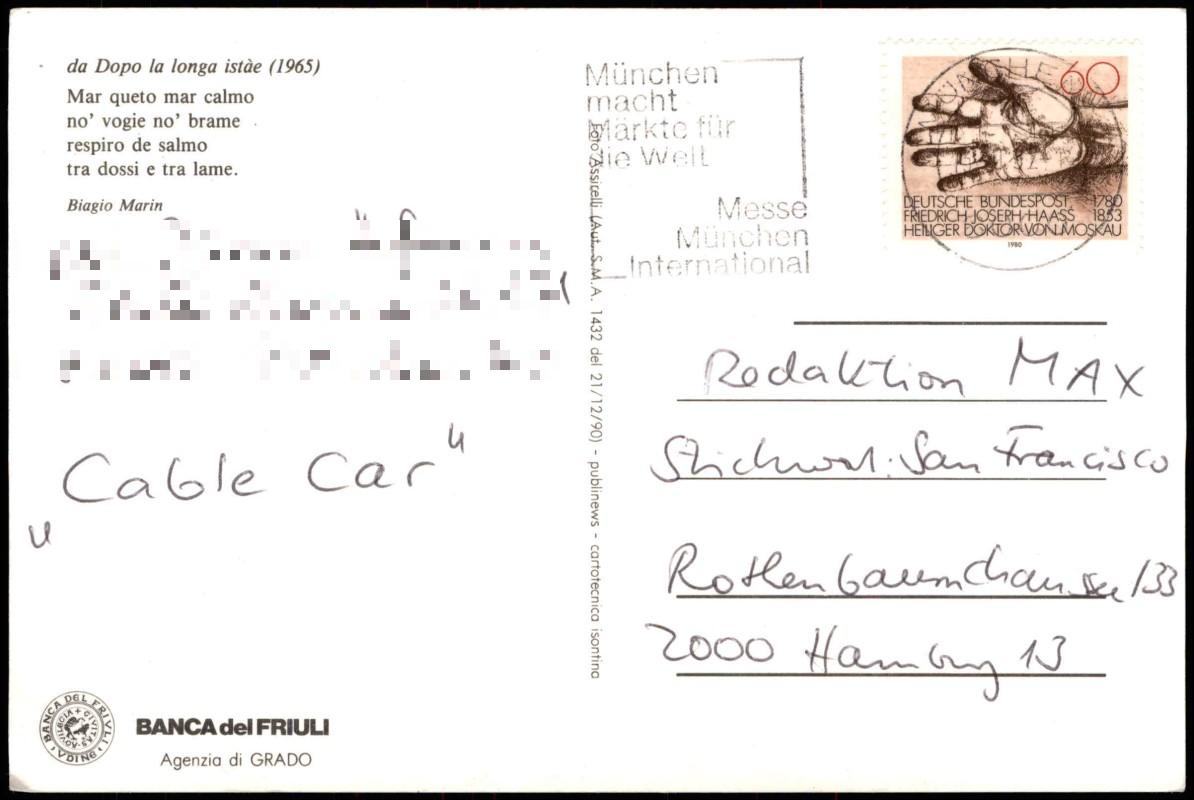 da Dopo la longa istàe (1965)
Mar queto mar calmo
no' vogie no' brame
respiro de salmo
tra dossi e tra lame.
Biagio Marin
„Cable Car"
BANCA DEL FRIULI
UDINE
AQVILEGIA + CIVITAS
BANCA del FRIULI
Agenzia di GRADO
Foto Assirelli (Aut. S.M.A. 1432 del 21/12/90) - publinews - cartotecnica isontina
München
macht
Märkte für
die Welt
Messe
München
International
60
DEUTSCHE BUNDESPOST 1780
FRIEDRICH JOSEPH HAASS 1853
HEILIGER DOKTOR VON MOSKAU
1980
Redaktion MAX
Stichwort: San Francisco
Rothenbaumchaussee 133
2000 Hamburg 13